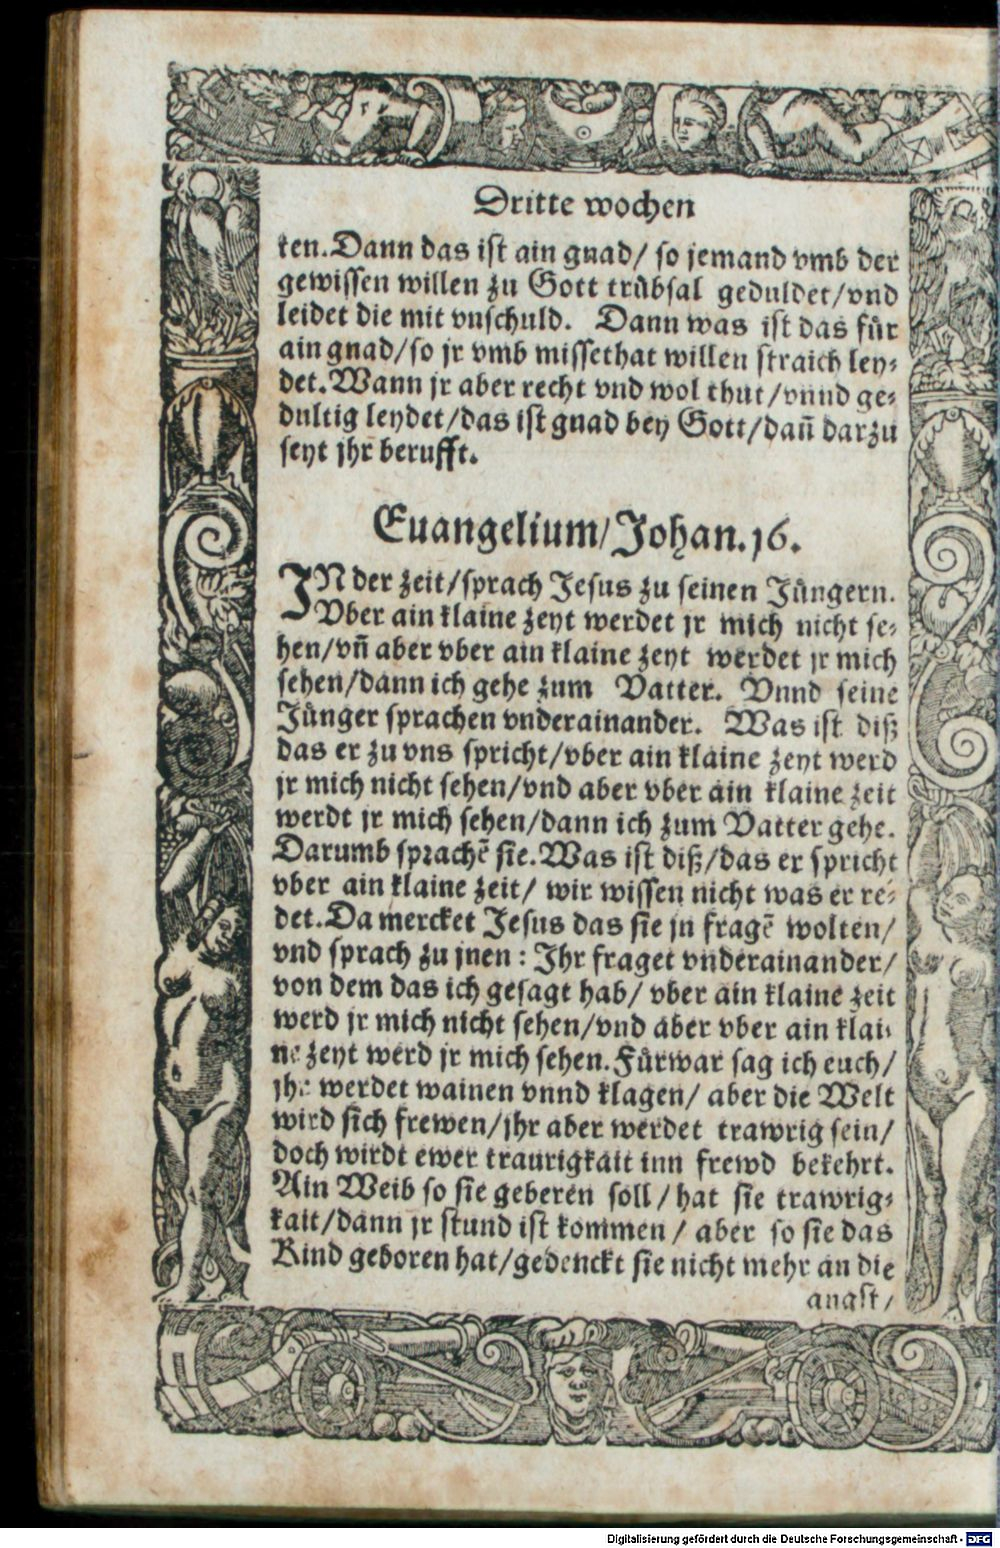 Dritte wochen
ten. Dann das ist ain gnad/ so jemand vmb der
gewissen willen zu Gott trübsal geduldet/vnd
leidet die mit vnschuld. Dann was ist das für
ain gnad/so jr vmb missethat willen straich ley⸗
det. Wann jr aber recht vnd wol thut/vnnd ge⸗
dultig leydet/das ist gnad bey Gott/dañ darzu
seyt jhr berufft.
Euangelium/Johan. 16.
IN der zeit/sprach Jesus zu seinen Jüngern.
Vber ain klaine zeyt werdet jr mich nicht se⸗
hen/vñ aber vber ain klaine zeyt werdet jr mich
sehen/dann ich gehe zum Vatter. Vnnd seine
Jünger sprachen vnderainander. Was ist diß
das er zu vns spricht/vber ain klaine zeyt werd
jr mich nicht sehen/vnd aber vber ain klaine zeit
werdt jr mich sehen/dann ich zum Vatter gehe.
Darumb sprachē sie. Was ist diß/das er spricht
vber ain klaine zeit/ wir wissen nicht was er re⸗
det. Da mercket Jesus das sie jn fragē wolten/
vnd sprach zu jnen : Ihr fraget vnderainander/
von dem das ich gesagt hab/ vber ain klaine zeit
werd jr mich nicht sehen/vnd aber vber ain klai⸗
ne zeyt werd jr mich sehen. Fürwar sag ich euch/
jhr werdet wainen vnnd klagen/ aber die Welt
wird sich frewen/jhr aber werdet trawrig sein/
doch wirdt ewer traurigkait inn frewd bekehrt.
Ain Weib so sie geberen soll/hat sie trawrig⸗
kait/dann jr stund ist kommen/ aber so sie das
Kind geboren hat/gedenckt sie nicht mehr an die
angst/
Digitalisierung gefördert durch die Deutsche Forschungsgemeinschaft - DFG